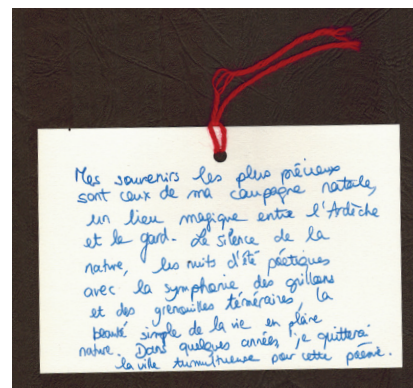 Mes souvenirs les plus précieux
sont ceux de ma campagne natale,
un lieu magique entre l'Ardèche
et le gard. Le silence de la
nature, les nuits d'été poétiques
avec la symphonie des grillons
et des grenouilles téméraires, la
beauté simple de la vie en pleine
nature. Dans quelques années, je quitterai
la ville turmultueuse pour cette poésie.